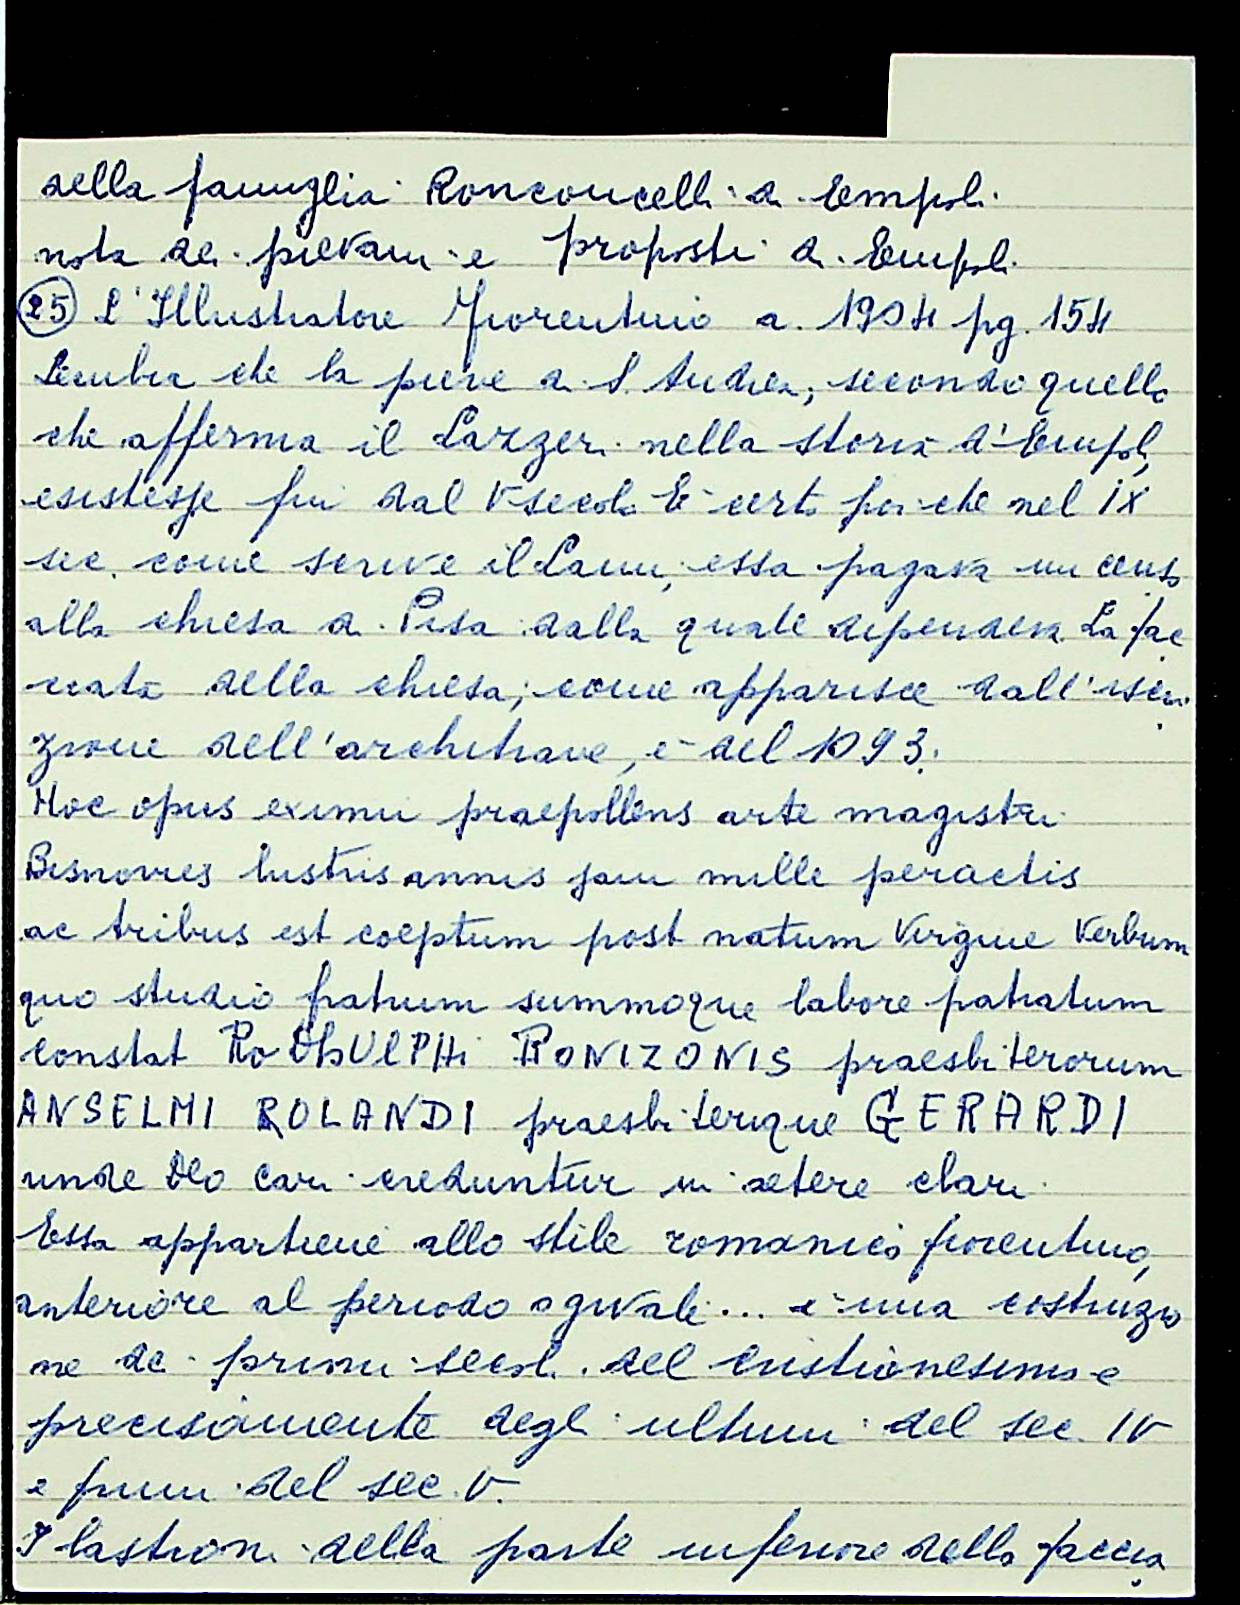 della famiglia Ronconcelli di Empoli.
nota dei pievani e proposti di Empoli
25 L'Illustratore Fiorentino a. 1904 pg. 154
Sembra che la pieve di S. Andrea, secondo quello
che afferma il Lazzeri nella storia d'Empoli,
esistesse fin dal V secolo È certo poi che nel IX
sec. come scrive il Lami, essa pagava un censo
alla chiesa di Pisa dalla quale dipendeva La fac
ciata della chiesa, come apparisce dall'iscri
zione dell'architrave, è del 1093.
Hoc opus eximii praepollens arte magistri
Bisnovies lustris annis jam mille peractis
ac tribus est coeptum post natum Virgine Verbum
quo studio fratrum summoque labore patratum
constat RoDhULPHi BONIZONIS praesbiterorum
ANSELMI ROLANDI praesbiterique GERARDI
unde Deo cari creduntur in aetere clari
Essa appartiene allo stile romanico fiorentino,
anteriore al periodo ogivale... è una costruzio
ne dei primi secoli del cristianesimo e
precisamente degli ultimi del sec. IV
e primi del sec. V.
I lastroni della parte inferiore della faccia